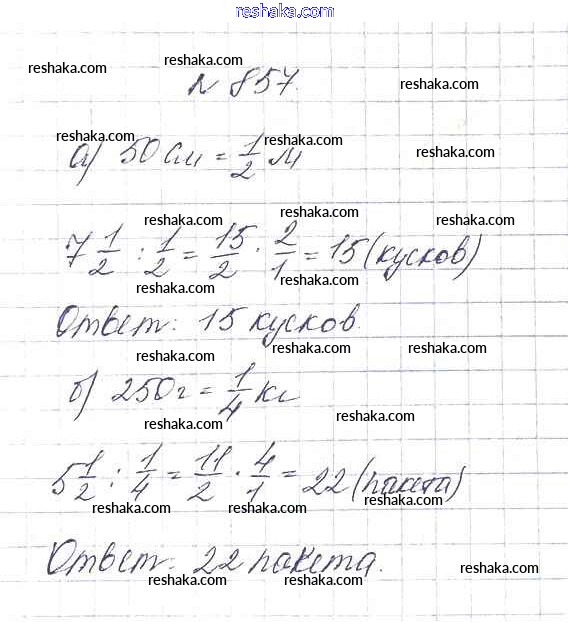 reshaka.com
reshaka.com
№ 857.
reshaka.com
reshaka.com reshaka.com
а) 50 см = 1/2 м
reshaka.com
reshaka.com reshaka.com
7 1/2 : 1/2 = 15/2 · 2/1 = 15 (кусков)
reshaka.com reshaka.com
reshaka.com
Ответ: 15 кусков.
reshaka.com reshaka.com
б) 250 г = 1/4 кг
reshaka.com
reshaka.com
5 1/2 : 1/4 = 11/2 · 4/1 = 22 (пакета)
reshaka.com
reshaka.com reshaka.com
Ответ: 22 пакета.
reshaka.com reshaka.com reshaka.com
reshaka.com